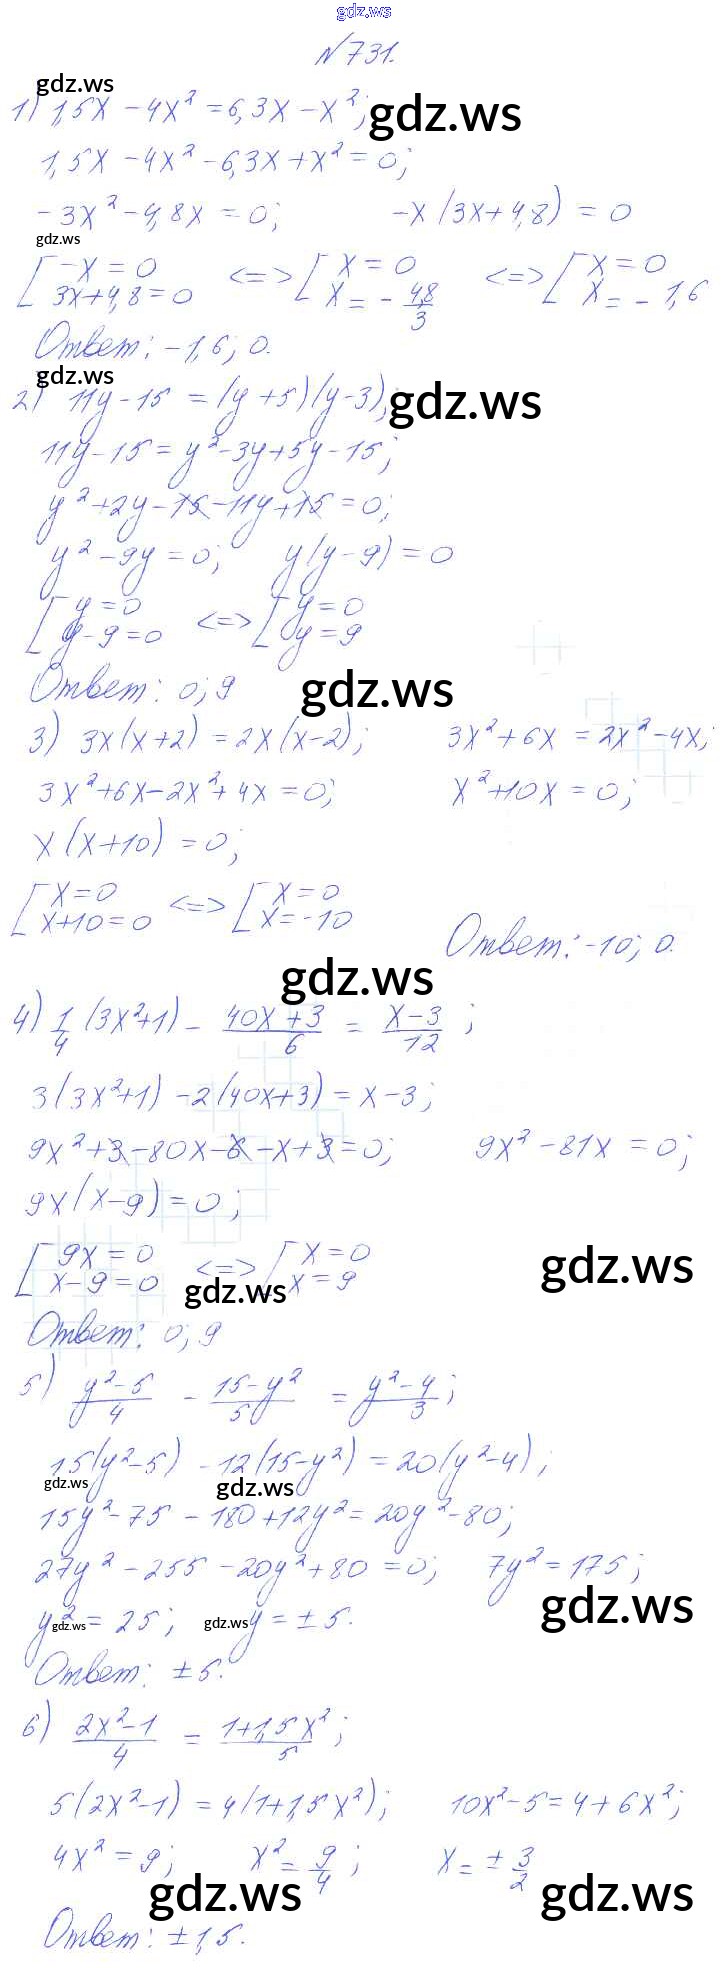 gdz.ws
№731.
gdz.ws
1) 1,5x - 4x² = 6,3x - x²; gdz.ws
1,5x - 4x² - 6,3x + x² = 0;
-3x² - 4,8x = 0; -x(3x+4,8) = 0
gdz.ws
[ -x = 0 <=> [ x = 0 <=> [ x = 0
3x+4,8=0 x = - 4,8/3 x = - 1,6
Ответ: -1,6; 0.
gdz.ws
2) 11y-15 = (y+5)(y-3); gdz.ws
11y-15 = y²-3y+5y-15;
y²+2y-15-11y+15=0;
y²-9y=0; y(y-9)=0
[ y=0 <=> [ y=0
y-9=0 y=9
Ответ: 0; 9 gdz.ws
3) 3x(x+2) = 2x(x-2); 3x²+6x = 2x²-4x;
3x²+6x-2x²+4x=0; x²+10x=0;
x(x+10)=0;
[ x=0 <=> [ x=0
x+10=0 x=-10
Ответ: -10; 0.
gdz.ws
4) 1/4 (3x²+1) - (40x+3)/6 = (x-3)/12;
3(3x²+1) - 2(40x+3) = x-3;
9x²+3-80x-6-x+3=0; 9x²-81x=0;
9x(x-9)=0;
[ 9x=0 <=> [ x=0 gdz.ws
x-9=0 x=9
gdz.ws
Ответ: 0; 9
5) (y²-5)/4 - (15-y²)/5 = (y²-4)/3;
15(y²-5) - 12(15-y²) = 20(y²-4);
gdz.ws gdz.ws
15y²-75 - 180+12y² = 20y²-80;
27y² - 255 - 20y²+80 = 0; 7y²=175;
gdz.ws
y²=25; y=±5.
gdz.ws gdz.ws
Ответ: ±5.
6) (2x²-1)/4 = (1+1,5x²)/5;
5(2x²-1) = 4(1+1,5x²); 10x²-5=4+6x²;
4x²=9; x²=9/4; x=±3/2
gdz.ws gdz.ws
Ответ: ±1,5.